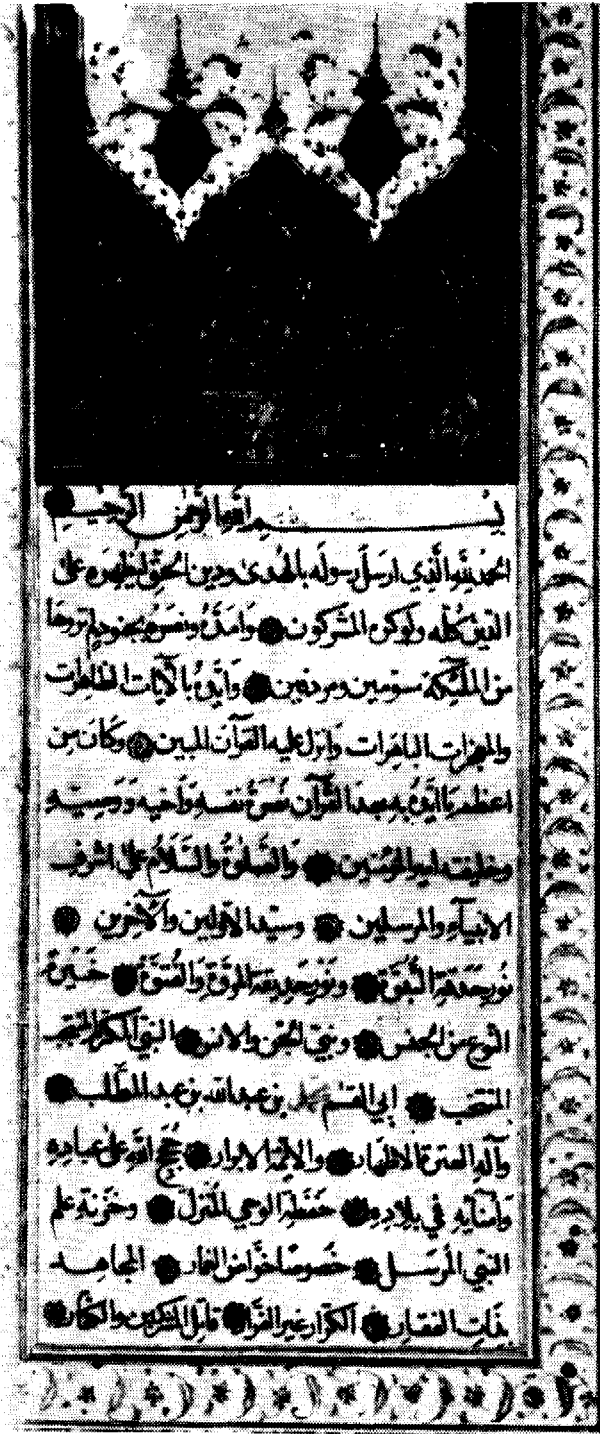 بسم الله الرحمن الرحيم
الحمد لله الذي ارسل رسوله بالهدى ودين الحق ليظهره على
الدين كله ولو كره المشركون وامده ونصره بجنود لم تروها
من الملئكة مسومين ومردفين وايده بالآيات الظاهرات
والمعجزات الباهرات وانزل عليه القرآن المبين وكان من
اعظم ما ايده به بعد القرآن نصرة نفسه واخيه ووصيه
وخليفته امير المؤمنين والصلوة والسلام على اشرف
الانبياء والمرسلين وسيد الاولين والآخرين
نور حدقة النبوة ونور حديقة المروة والفتوة
النبي ونبي الجن والانس
المنتخب ابي القاسم محمد بن عبدالله بن عبد المطلب
وآله العترة الاطهار والائمة الابرار حجج الله على عباده
وامنائه في بلاده حفظة الوحي المنزل وخزنة علم
النبي المرسل خصوصا خواض الغمار المجاهد
بذات الفقار الكرار غير الفرار قاتل المشركين والكفار